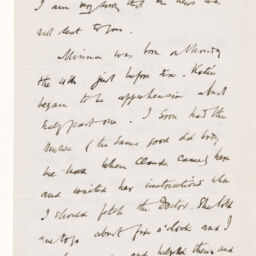 I am very sorry that the news was
not sent to you.
Minna was born on Monday
the 4th. just before six. Katie
began to be apprehensive about
half past one. I soon had the
nurse (the same good old body
we had when Claude came) here
and waited her instructions when
I should fetch the Doctor. She told
me to go about five o'clock and I
and helped them and